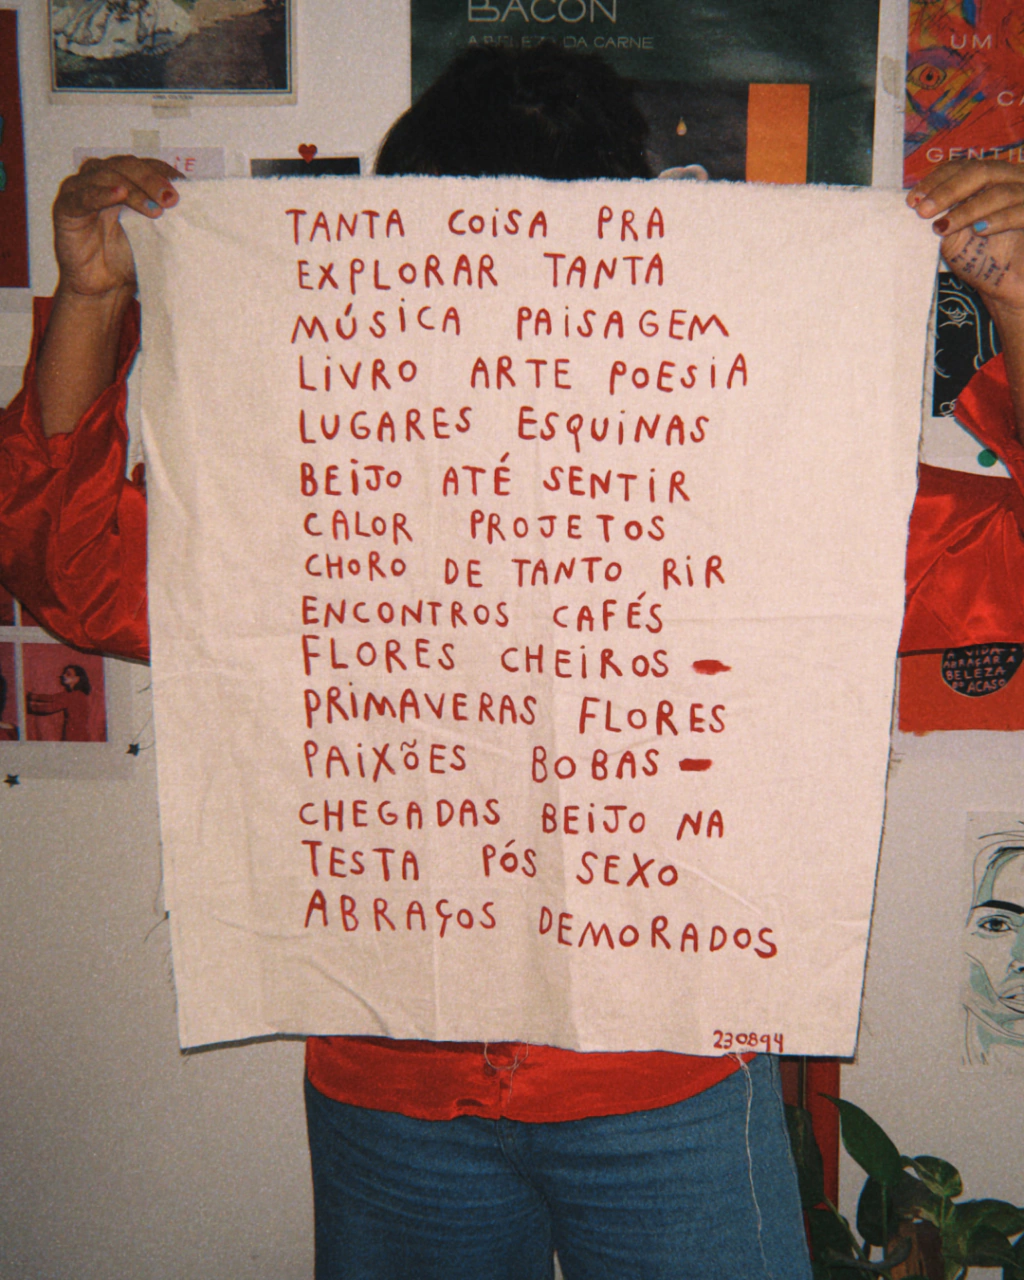 BACON
A BELEZA DA CARNE
UM
GENTIL
TANTA COISA PRA
EXPLORAR TANTA
MÚSICA PAISAGEM
LIVRO ARTE POESIA
LUGARES ESQUINAS
BEIJO ATÉ SENTIR
CALOR PROJETOS
CHORO DE TANTO RIR
ENCONTROS CAFÉS
FLORES CHEIROS -
PRIMAVERAS FLORES
PAIXÕES BOBAS -
CHEGADAS BEIJO NA
TESTA PÓS SEXO
ABRAÇOS DEMORADOS
230894
A VIDA
ABRAÇAR A
BELEZA
DO ACASO